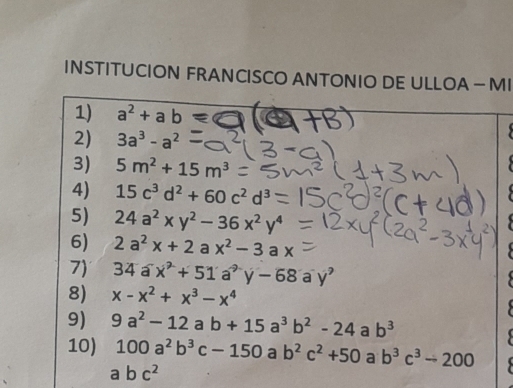 INSTITUCION FRANCISCO ANTONIO DE ULLOA – MI
1) a² + a b = a(a+B)
2) 3a³ - a² = a²(3-a)
3) 5 m² + 15 m³ = 5m²(1+3m)
4) 15 c³ d² + 60 c² d³ = 15c²d²(c+4d)
5) 24 a² x y² – 36 x² y⁴ = 12xy²(2a²-3x¹y²)
6) 2 a² x + 2 a x² – 3 a x =
7) 34 a x² + 51 a² y – 68 a y²
8) x - x² + x³ – x⁴
9) 9 a² – 12 a b + 15 a³ b² - 24 a b³
10) 100 a² b³ c – 150 a b² c² +50 a b³ c³ – 200
a b c²